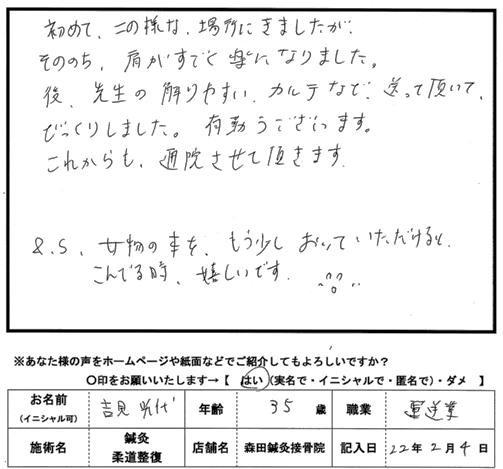 初めて、この様な、場所にきましたが、
そののち、肩がすごく楽になりました。
後、先生の解りやすい、カルテなど、送って頂いて、
びっくりしました。有難うございます。
これからも、通院させて頂きます
P.S、女物の本を、もう少しおいていただけると、
こんでる時、嬉しいです。
※あなた様の声をホームページや紙面などでご紹介してもよろしいですか？
〇印をお願いいたします→【 はい(実名で・イニシャルで・匿名で)・ダメ 】
お名前 (イニシャル可) 吉見 代 年齢 35 歳 職業 運送業
施術名 鍼灸 柔道整復 店舗名 森田鍼灸接骨院 記入日 22年2月4日